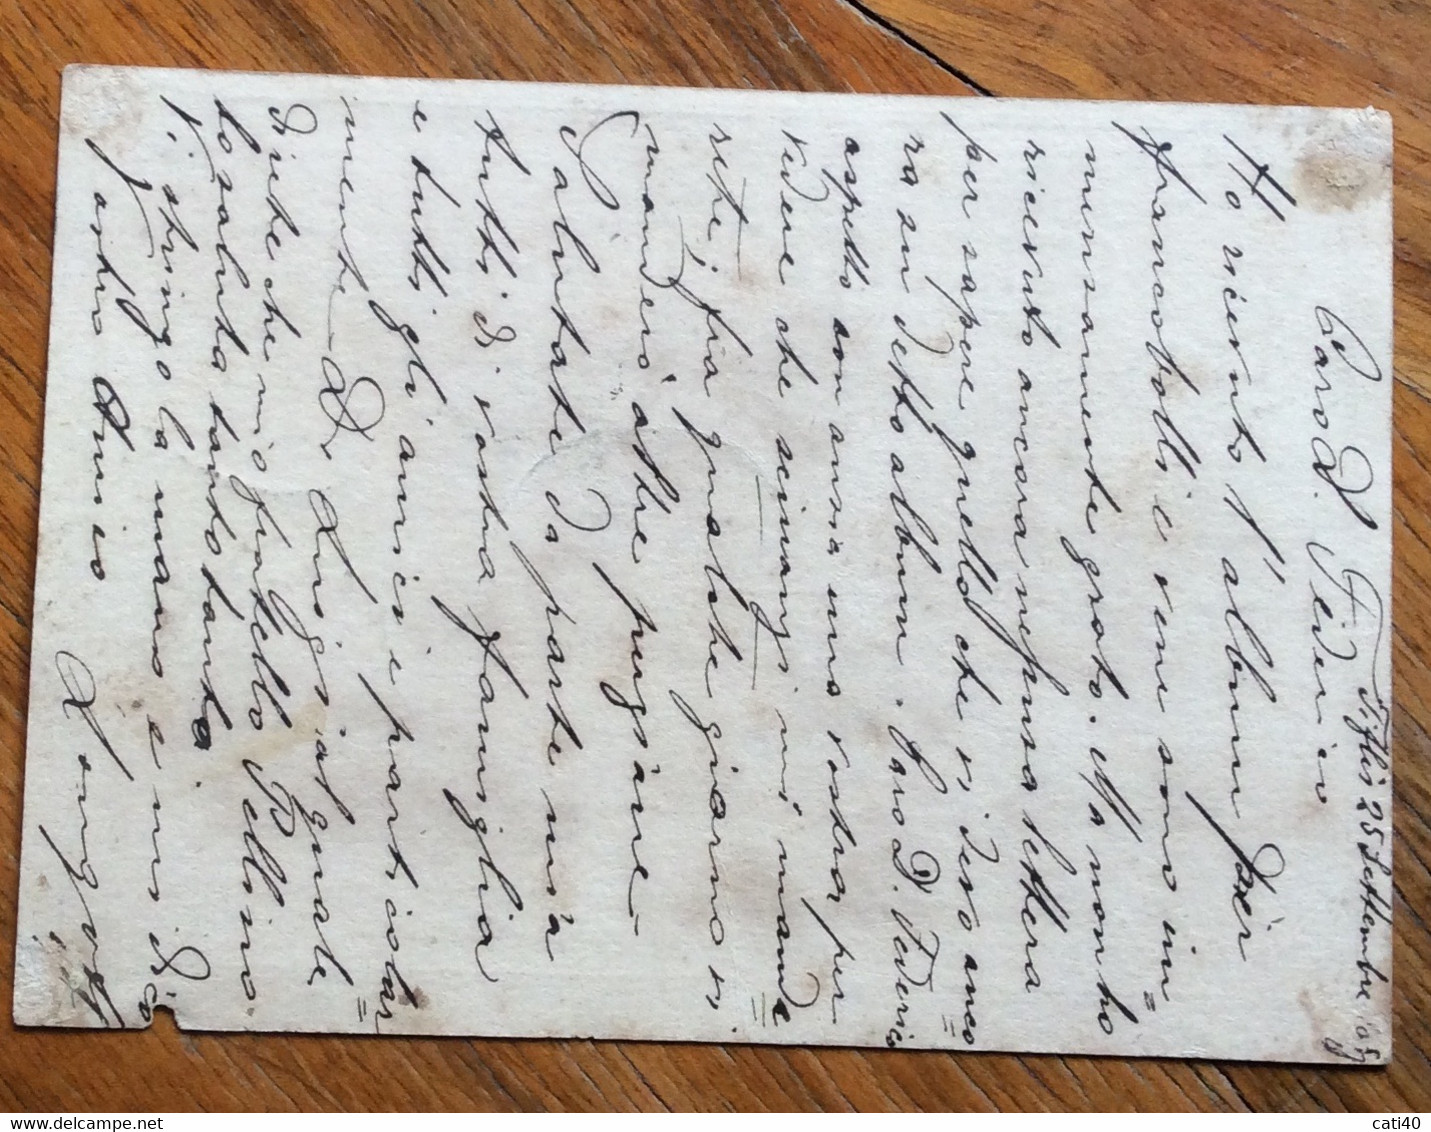 Tiflis 25 Settembre
Caro D. Federico
Ho ricevuto l'album per
francobolli e vene sono im=
mensamente grato. Ma non ho
ricevuto ancora nessuna lettera
per sapere quello che vi devo anco=
ra su detto album. Caro D. Federico
aspetto con ansia una vostra per
vedere che seimangi mi mande=
rete; fra qualche giorno vi
manderò altre pugsiane
Salutate da parte mia
tutti di vostra famiglia
e tutti gli amici e particolar=
mente D. Luigi al quale
direte che mio fratello Bellino
lo saluta tanto tanto.
Vi stringo la mano e mi dico
Vostro Amico
cati40